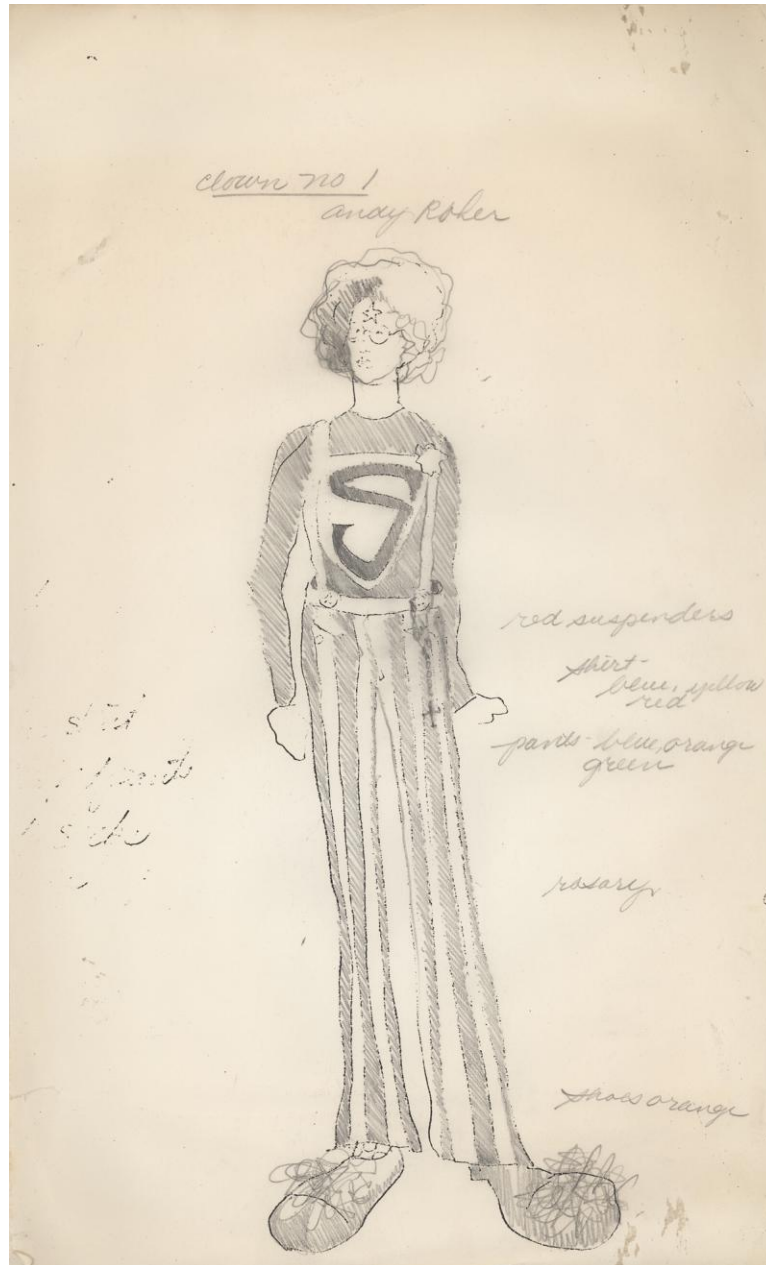 clown no 1
andy Roher
S
red suspenders
shirt-
blue, yellow
red
pants-blue, orange
green
rosary
shoes orange